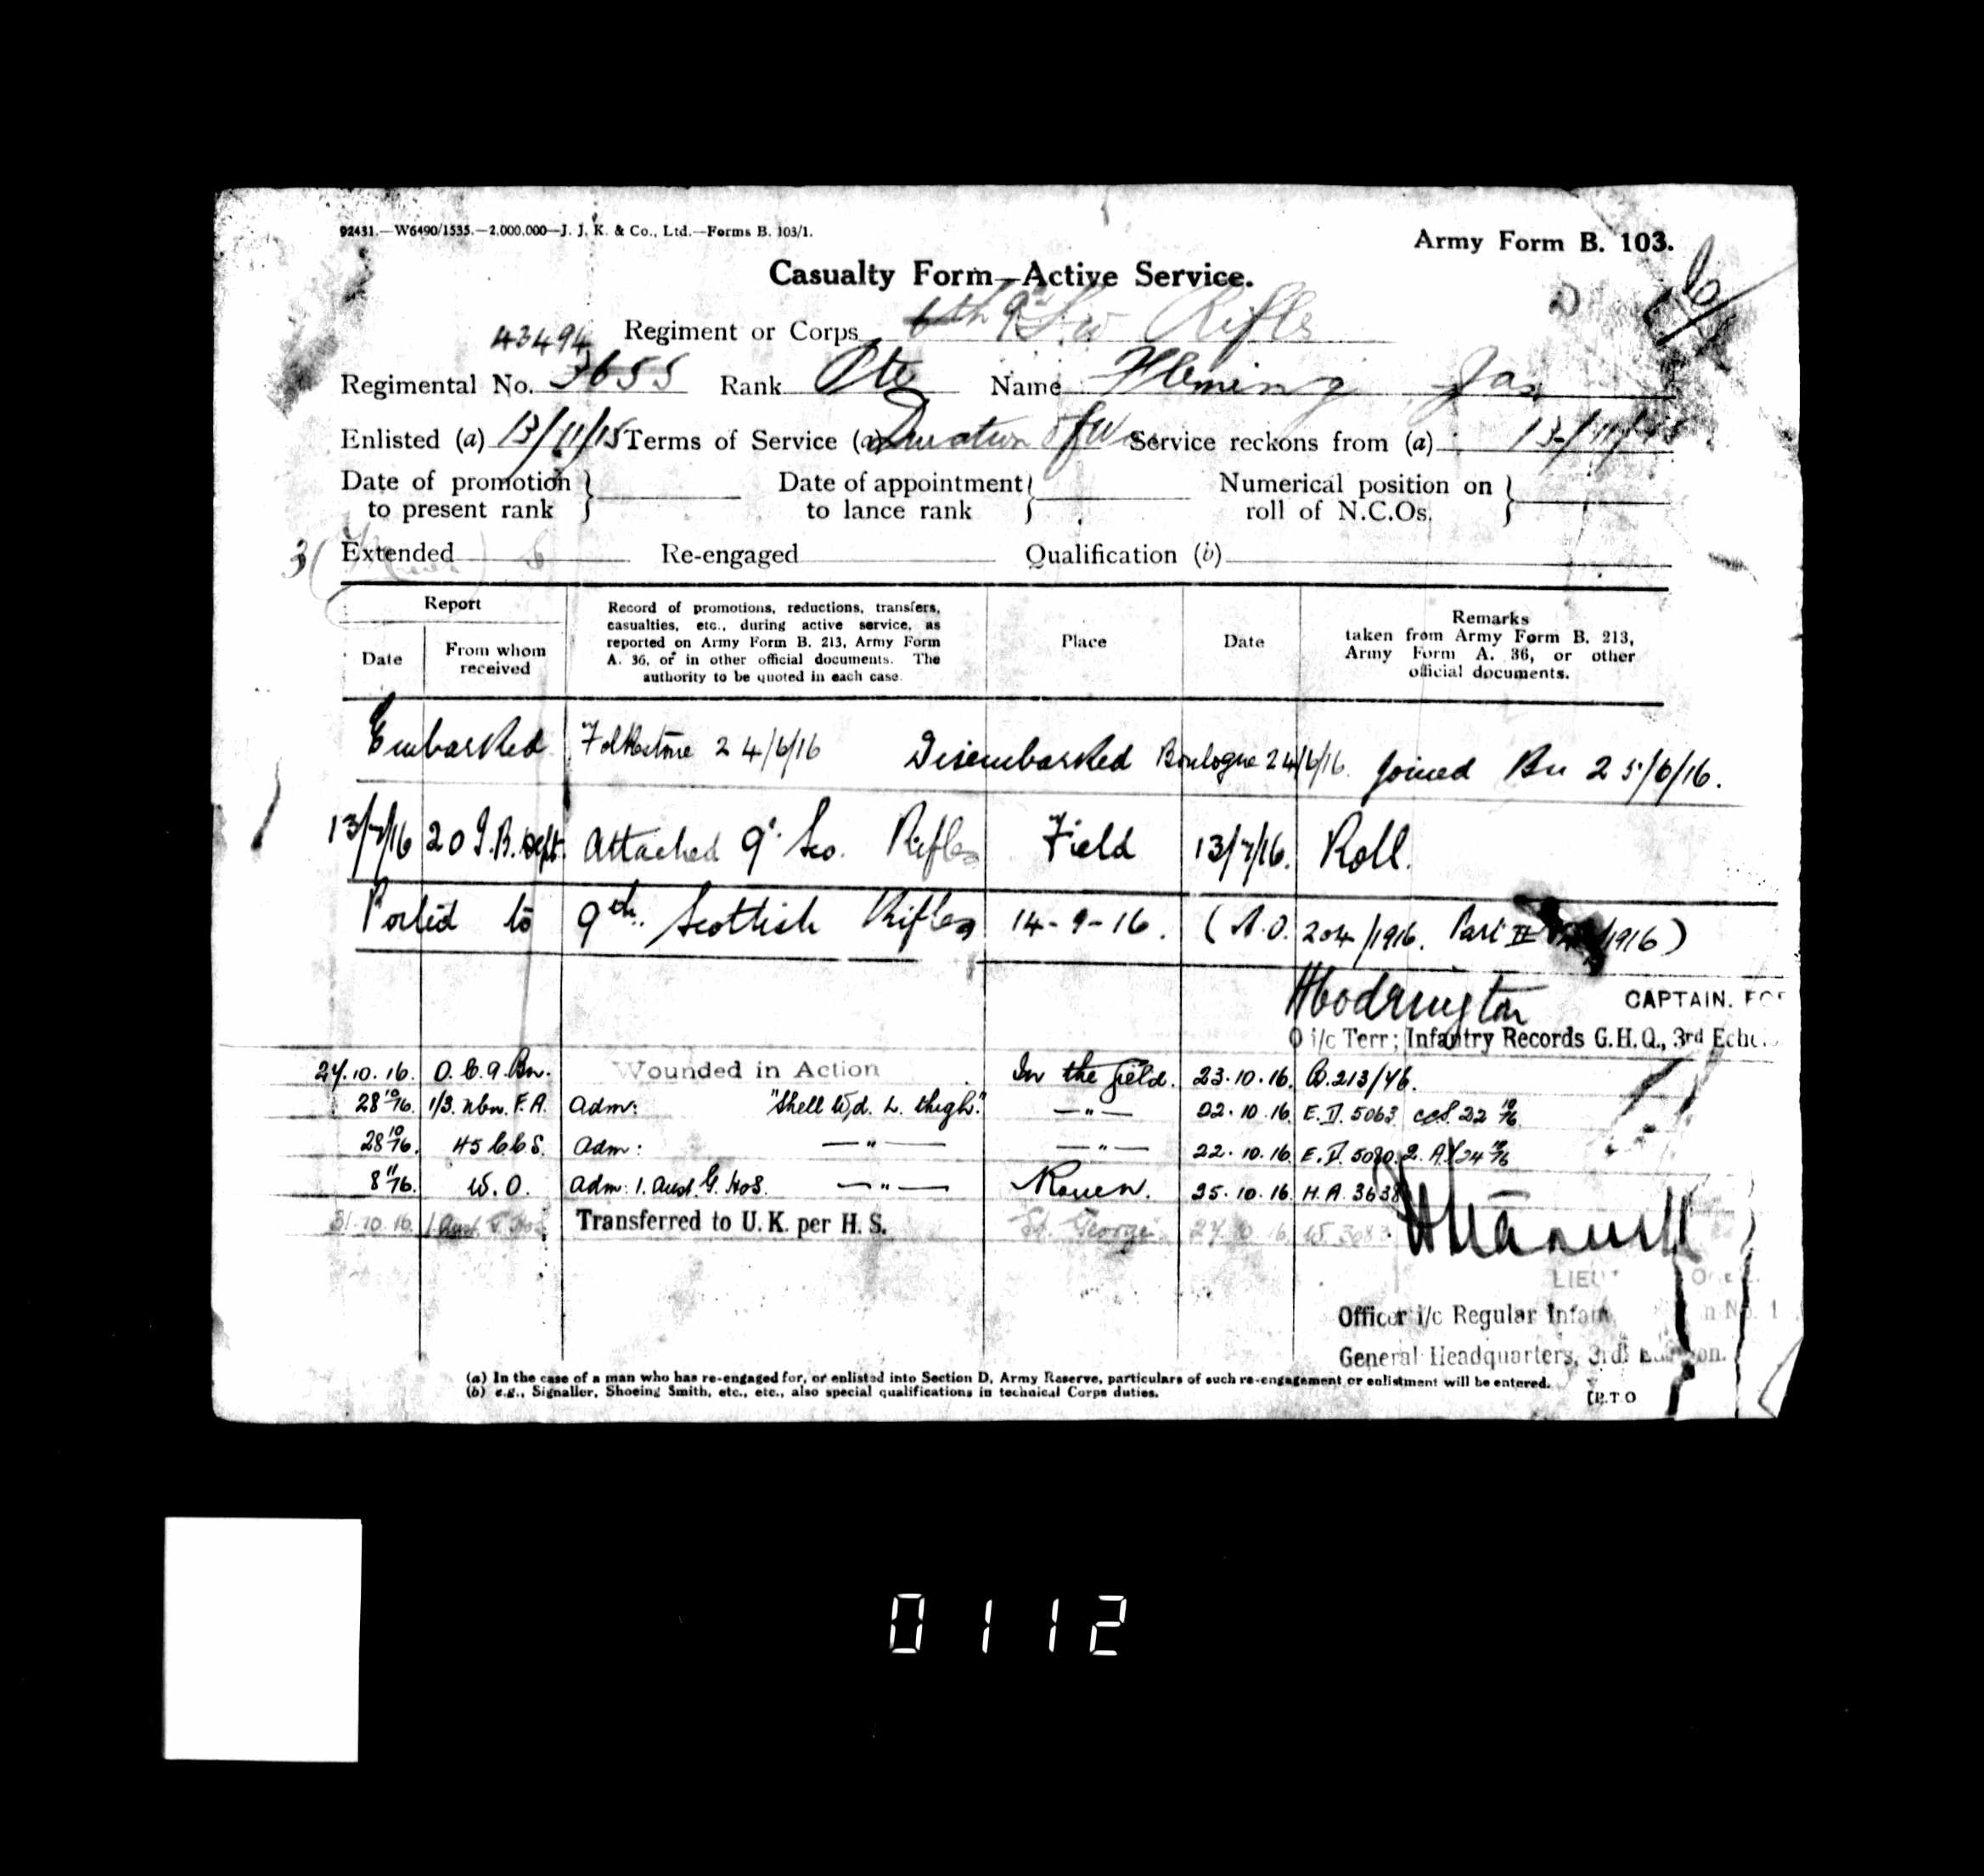 92431.—W6490/1535.—2,000,000—J. J. K. & Co., Ltd.—Forms B. 103/1.
Army Form B. 103.
Casualty Form—Active Service.
Regiment or Corps 6th 9th Sco Rifles
43494
Regimental No. 3655 Rank Pte Name Fleming Jas
Enlisted (a) 13/11/15 Terms of Service (a) Duration of War Service reckons from (a) 13/11/15
Date of promotion to present rank } Date of appointment to lance rank } Numerical position on roll of N.C.Os. }
Extended Re-engaged Qualification (b)
Report
Date
From whom received
Record of promotions, reductions, transfers, casualties, etc., during active service, as reported on Army Form B. 213, Army Form A. 36, or in other official documents. The authority to be quoted in each case.
Place
Date
Remarks taken from Army Form B. 213, Army Form A. 36, or other official documents.
Embarked Folkestone 24/6/16 Disembarked Boulogne 24/6/16. Joined Bn 25/6/16.
13/7/16 20 I.B. Dept. Attached 9th Sco. Rifles Field 13/7/16. Roll.
Posted to 9th. Scottish Rifles 14-9-16. (A.O. 204/1916. Part II /1916)
CAPTAIN. FOR
O i/c Terr; Infantry Records G.H.Q., 3rd Eche
27.10.16. O.C. 9. Bn. Wounded in Action In the field. 23.10.16. B.213/46.
28 10/16. 1/3. Nbn. F.A. Adm: "Shell Wd. L. thigh." —"— 22.10.16. E.D. 5063 CCS. 22 10/16
28 10/16. 45 C.C.S. Adm: —"— —"— 22.10.16. E.D. 5080. 2. A.T. 24 10/16
8 11/16. W.O. Adm: 1. Aust. G. Hos. —"— Rouen. 25.10.16. H.A. 3638
31.10.16. 1 Aust. G. Hos Transferred to U.K. per H.S. St. George 27.10.16. W. 3083.
LIEUT
Officer i/c Regular Infan n No. 1
General Headquarters, 3rd
(a) In the case of a man who has re-engaged for, or enlisted into Section D, Army Reserve, particulars of such re-engagement or enlistment will be entered.
(b) e.g., Signaller, Shoeing Smith, etc., etc., also special qualifications in technical Corps duties.
[P.T.O
0112